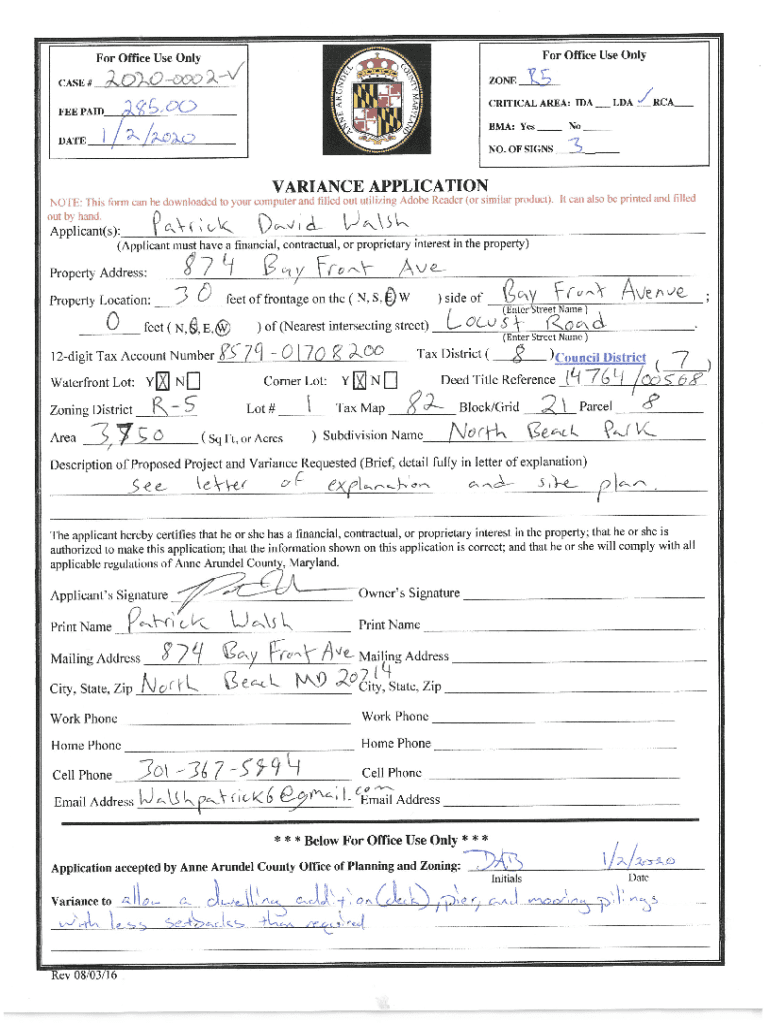 For Office Use Only
CASE # 2020-0002-V
FEE PAID 285.00
DATE 1/2/2020
ANNE ARUNDEL COUNTY, MARYLAND
For Office Use Only
ZONE R5
CRITICAL AREA: IDA ___ LDA ✓ RCA___
BMA: Yes ____ No ____
NO. OF SIGNS 3
VARIANCE APPLICATION
NOTE: This form can be downloaded to your computer and filled out utilizing Adobe Reader (or similar product). It can also be printed and filled
out by hand.
Applicant(s): Patrick David Walsh
(Applicant must have a financial, contractual, or proprietary interest in the property)
Property Address: 874 Bay Front Ave
Property Location: 30 feet of frontage on the ( N, S, E, W ) side of Bay Front Avenue ;
(Enter Street Name )
0 feet ( N, S, E, W ) of (Nearest intersecting street) Locust Road .
(Enter Street Name )
12-digit Tax Account Number 8579-01708200 Tax District ( 8 ) Council District ( 7 )
Waterfront Lot: Y ☒ N ☐ Corner Lot: Y ☒ N ☐ Deed Title Reference 14764/00568
Zoning District R-5 Lot # 1 Tax Map 82 Block/Grid 21 Parcel 8
Area 3,750 ( Sq Ft, or Acres ) Subdivision Name North Beach Park
Description of Proposed Project and Variance Requested (Brief, detail fully in letter of explanation)
see letter of explanation and site plan.
The applicant hereby certifies that he or she has a financial, contractual, or proprietary interest in the property; that he or she is
authorized to make this application; that the information shown on this application is correct; and that he or she will comply with all
applicable regulations of Anne Arundel County, Maryland.
Applicant's Signature Owner's Signature
Print Name Patrick Walsh Print Name
Mailing Address 874 Bay Front Ave Mailing Address
City, State, Zip North Beach MD 20714 City, State, Zip
Work Phone Work Phone
Home Phone Home Phone
Cell Phone 301-367-5894 Cell Phone
Email Address Walshpatrick6@gmail.com Email Address
* * * Below For Office Use Only * * *
Application accepted by Anne Arundel County Office of Planning and Zoning: DAB 1/2/2020
Initials Date
Variance to allow a dwelling addition (deck), pier, and mooring pilings
with less setbacks than required
Rev 08/03/16